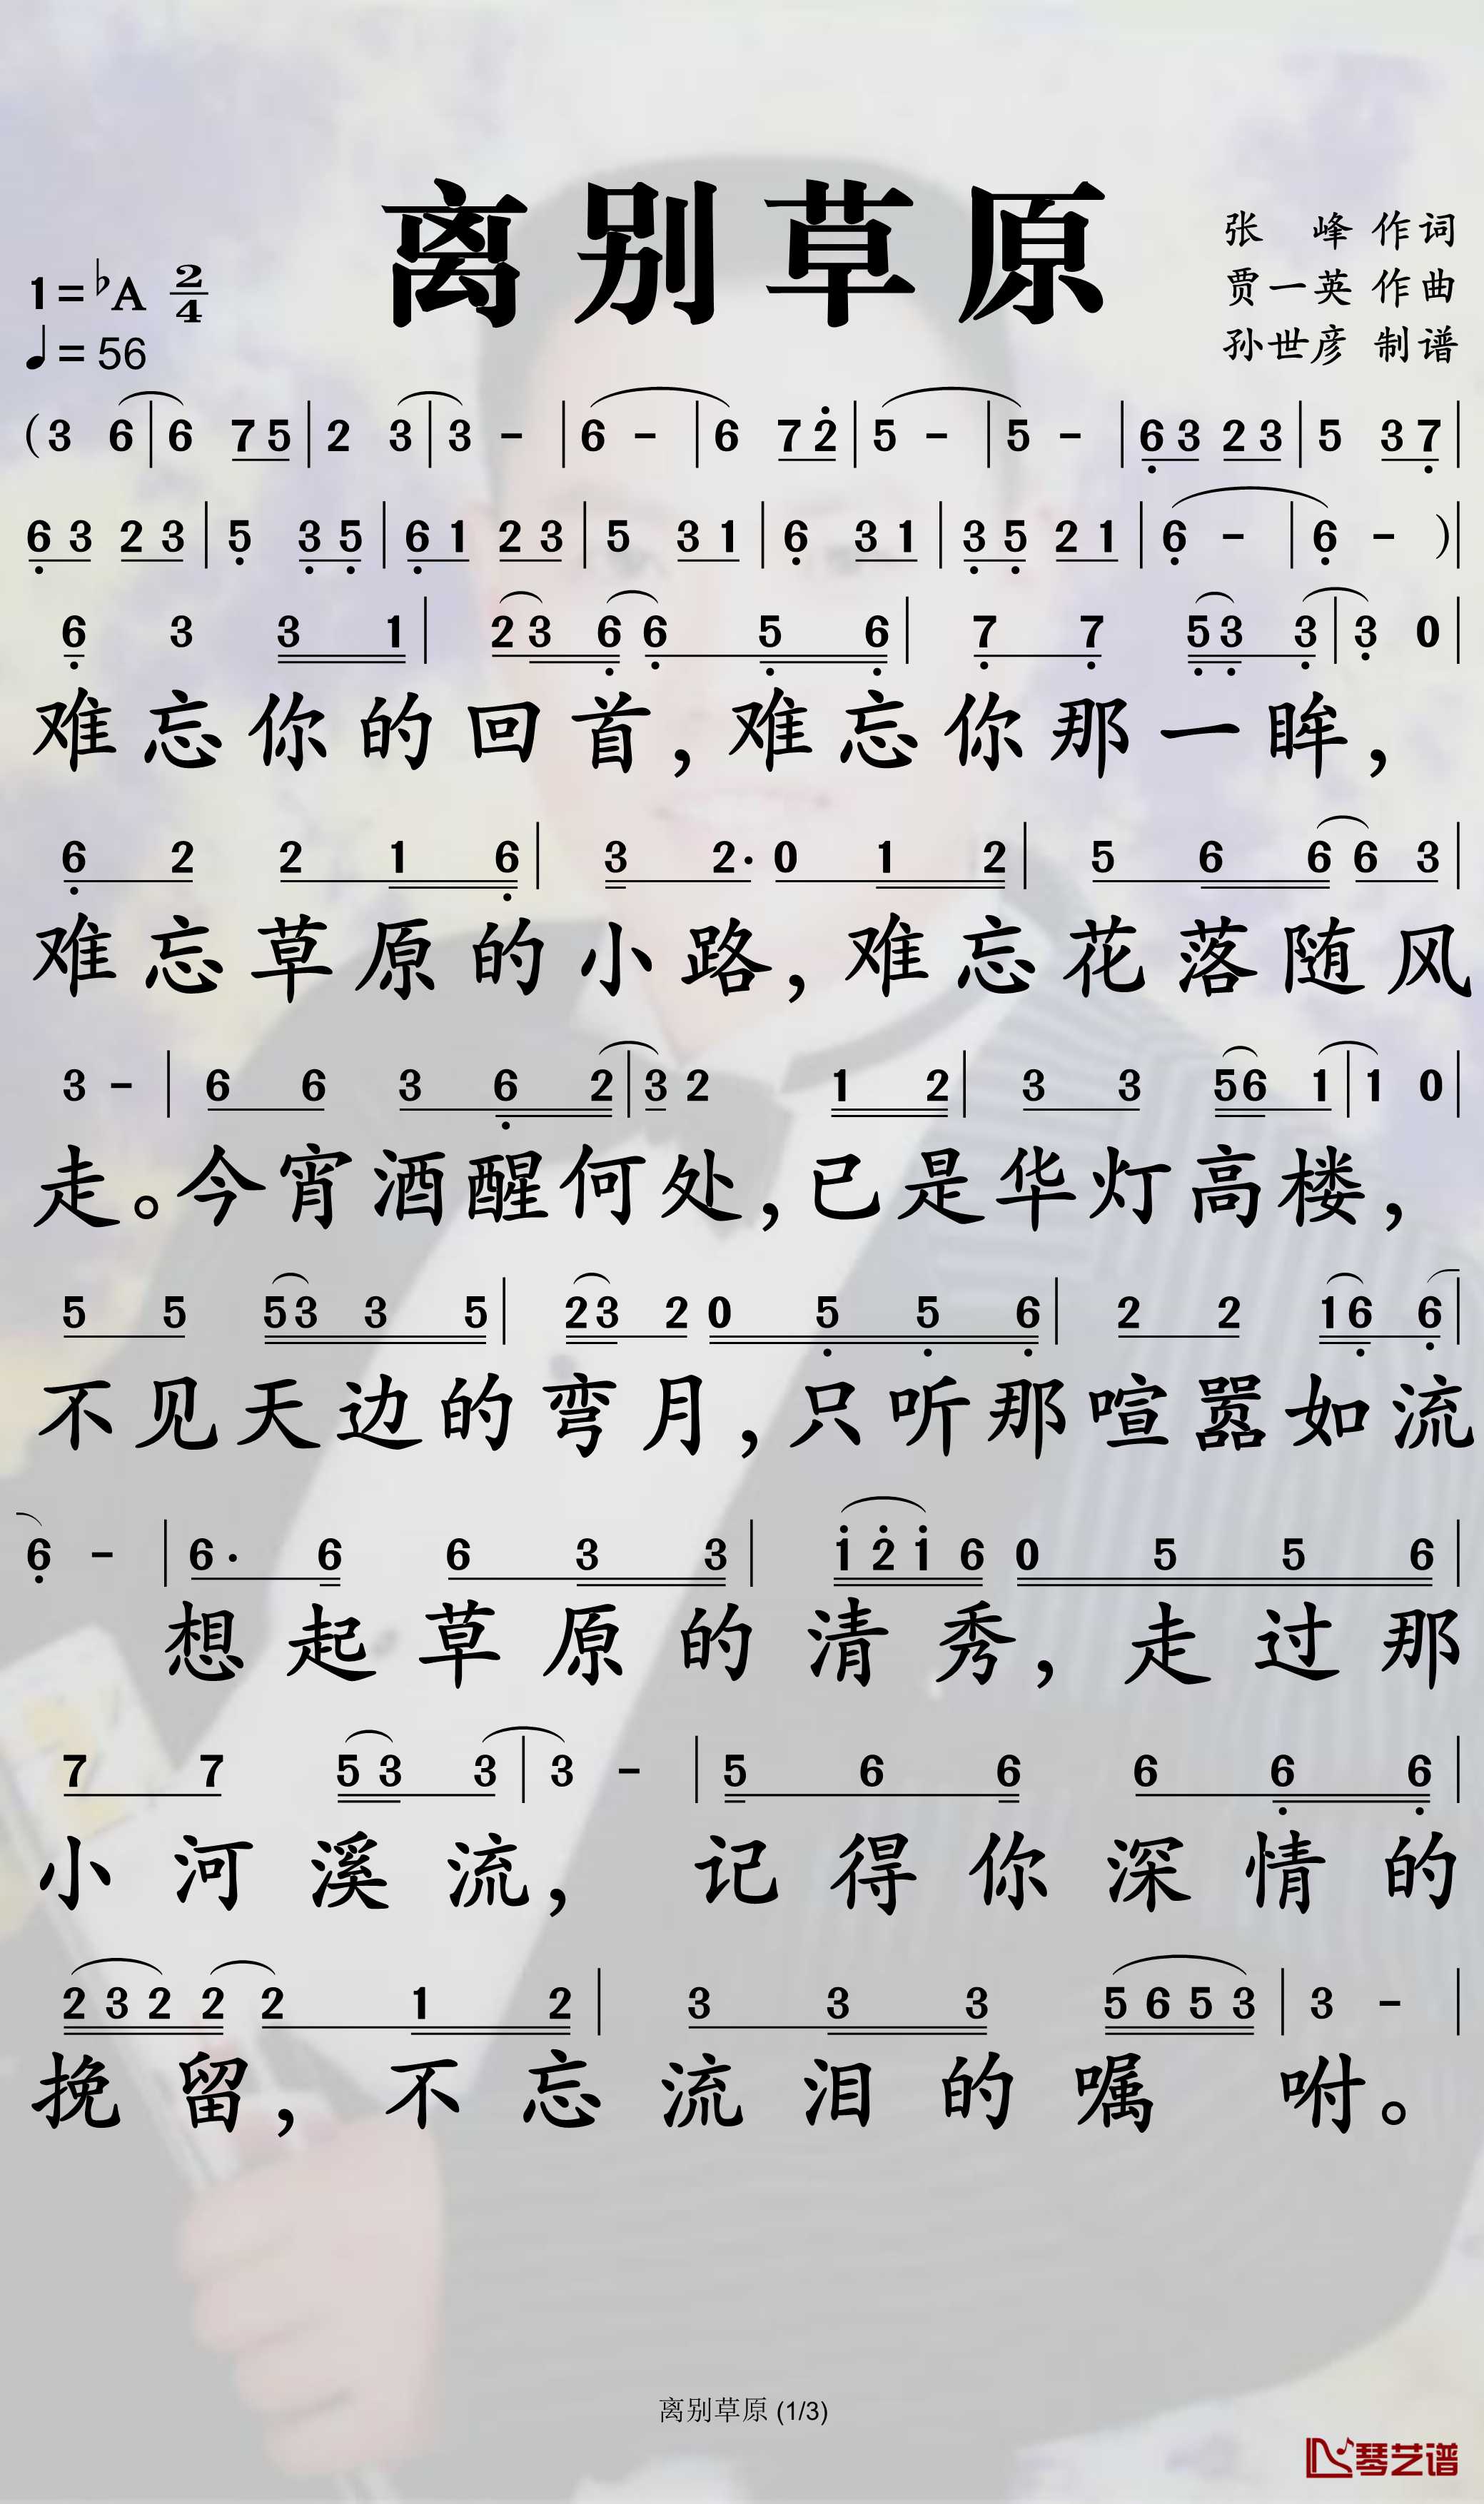 离别草原
张 峰 作词
1=♭A 2/4
贾一英 作曲
♩=56
孙世彦 制谱
(3 6 | 6 75 | 2 3 | 3 - | 6 - | 6 72̇ | 5 - | 5 - | 6̣3 23 | 5 37̣ |
6̣3 23 | 5̣ 3̣5̣ | 6̣1 23 | 5 31 | 6̣ 31 | 3̣5̣ 21 | 6̣ - | 6̣ - )|
6̣ 3 3 1 | 2 3 6̣ 6̣ 5̣ 6̣ | 7̣ 7̣ 5̣3̣ 3̣ | 3̣ 0 |
难忘你的回首,难忘你那一眸,
6̣ 2 2 1 6̣ | 3 2· 0 1 2 | 5 6 6 6 3 |
难忘草原的小路,难忘花落随风
3 - | 6 6 3 6̣ 2 | 3 2 1 2 | 3 3 56 1 | 1 0 |
走。今宵酒醒何处,已是华灯高楼,
5 5 53 3 5 | 23 2 0 5̣ 5̣ 6̣ | 2 2 16̣ 6̣ |
不见天边的弯月,只听那喧嚣如流
6̣ - | 6· 6 6 3 3 | 1̇2̇1̇ 6 0 5 5 6 |
想起草原的清秀,走过那
7 7 53 3 | 3 - | 5 6 6 6 6̣ 6̣ |
小河溪流,记得你深情的
232 2 2 1 2 | 3 3 3 5653 | 3 - |
挽留,不忘流泪的嘱咐。
离别草原 (1/3)
琴艺谱